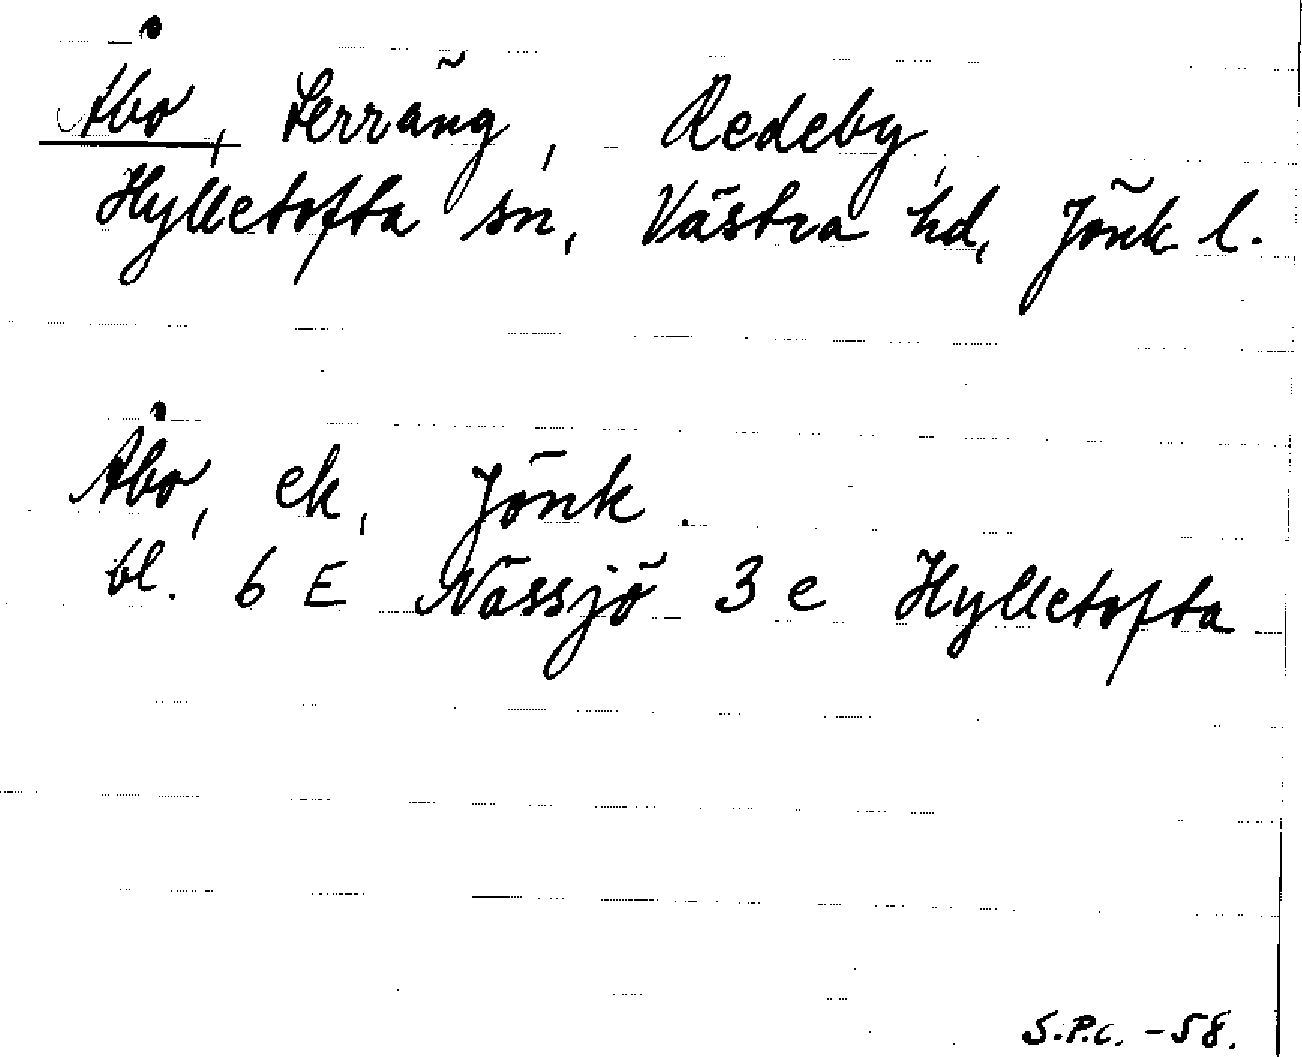 Åbo, terräng, Redeby,
Hylletofta sn, Västra hd, Jönk l.
Åbo, ek, Jönk.
bl. 6 E Nässjö 3 e Hylletofta
S.P.c. -58.